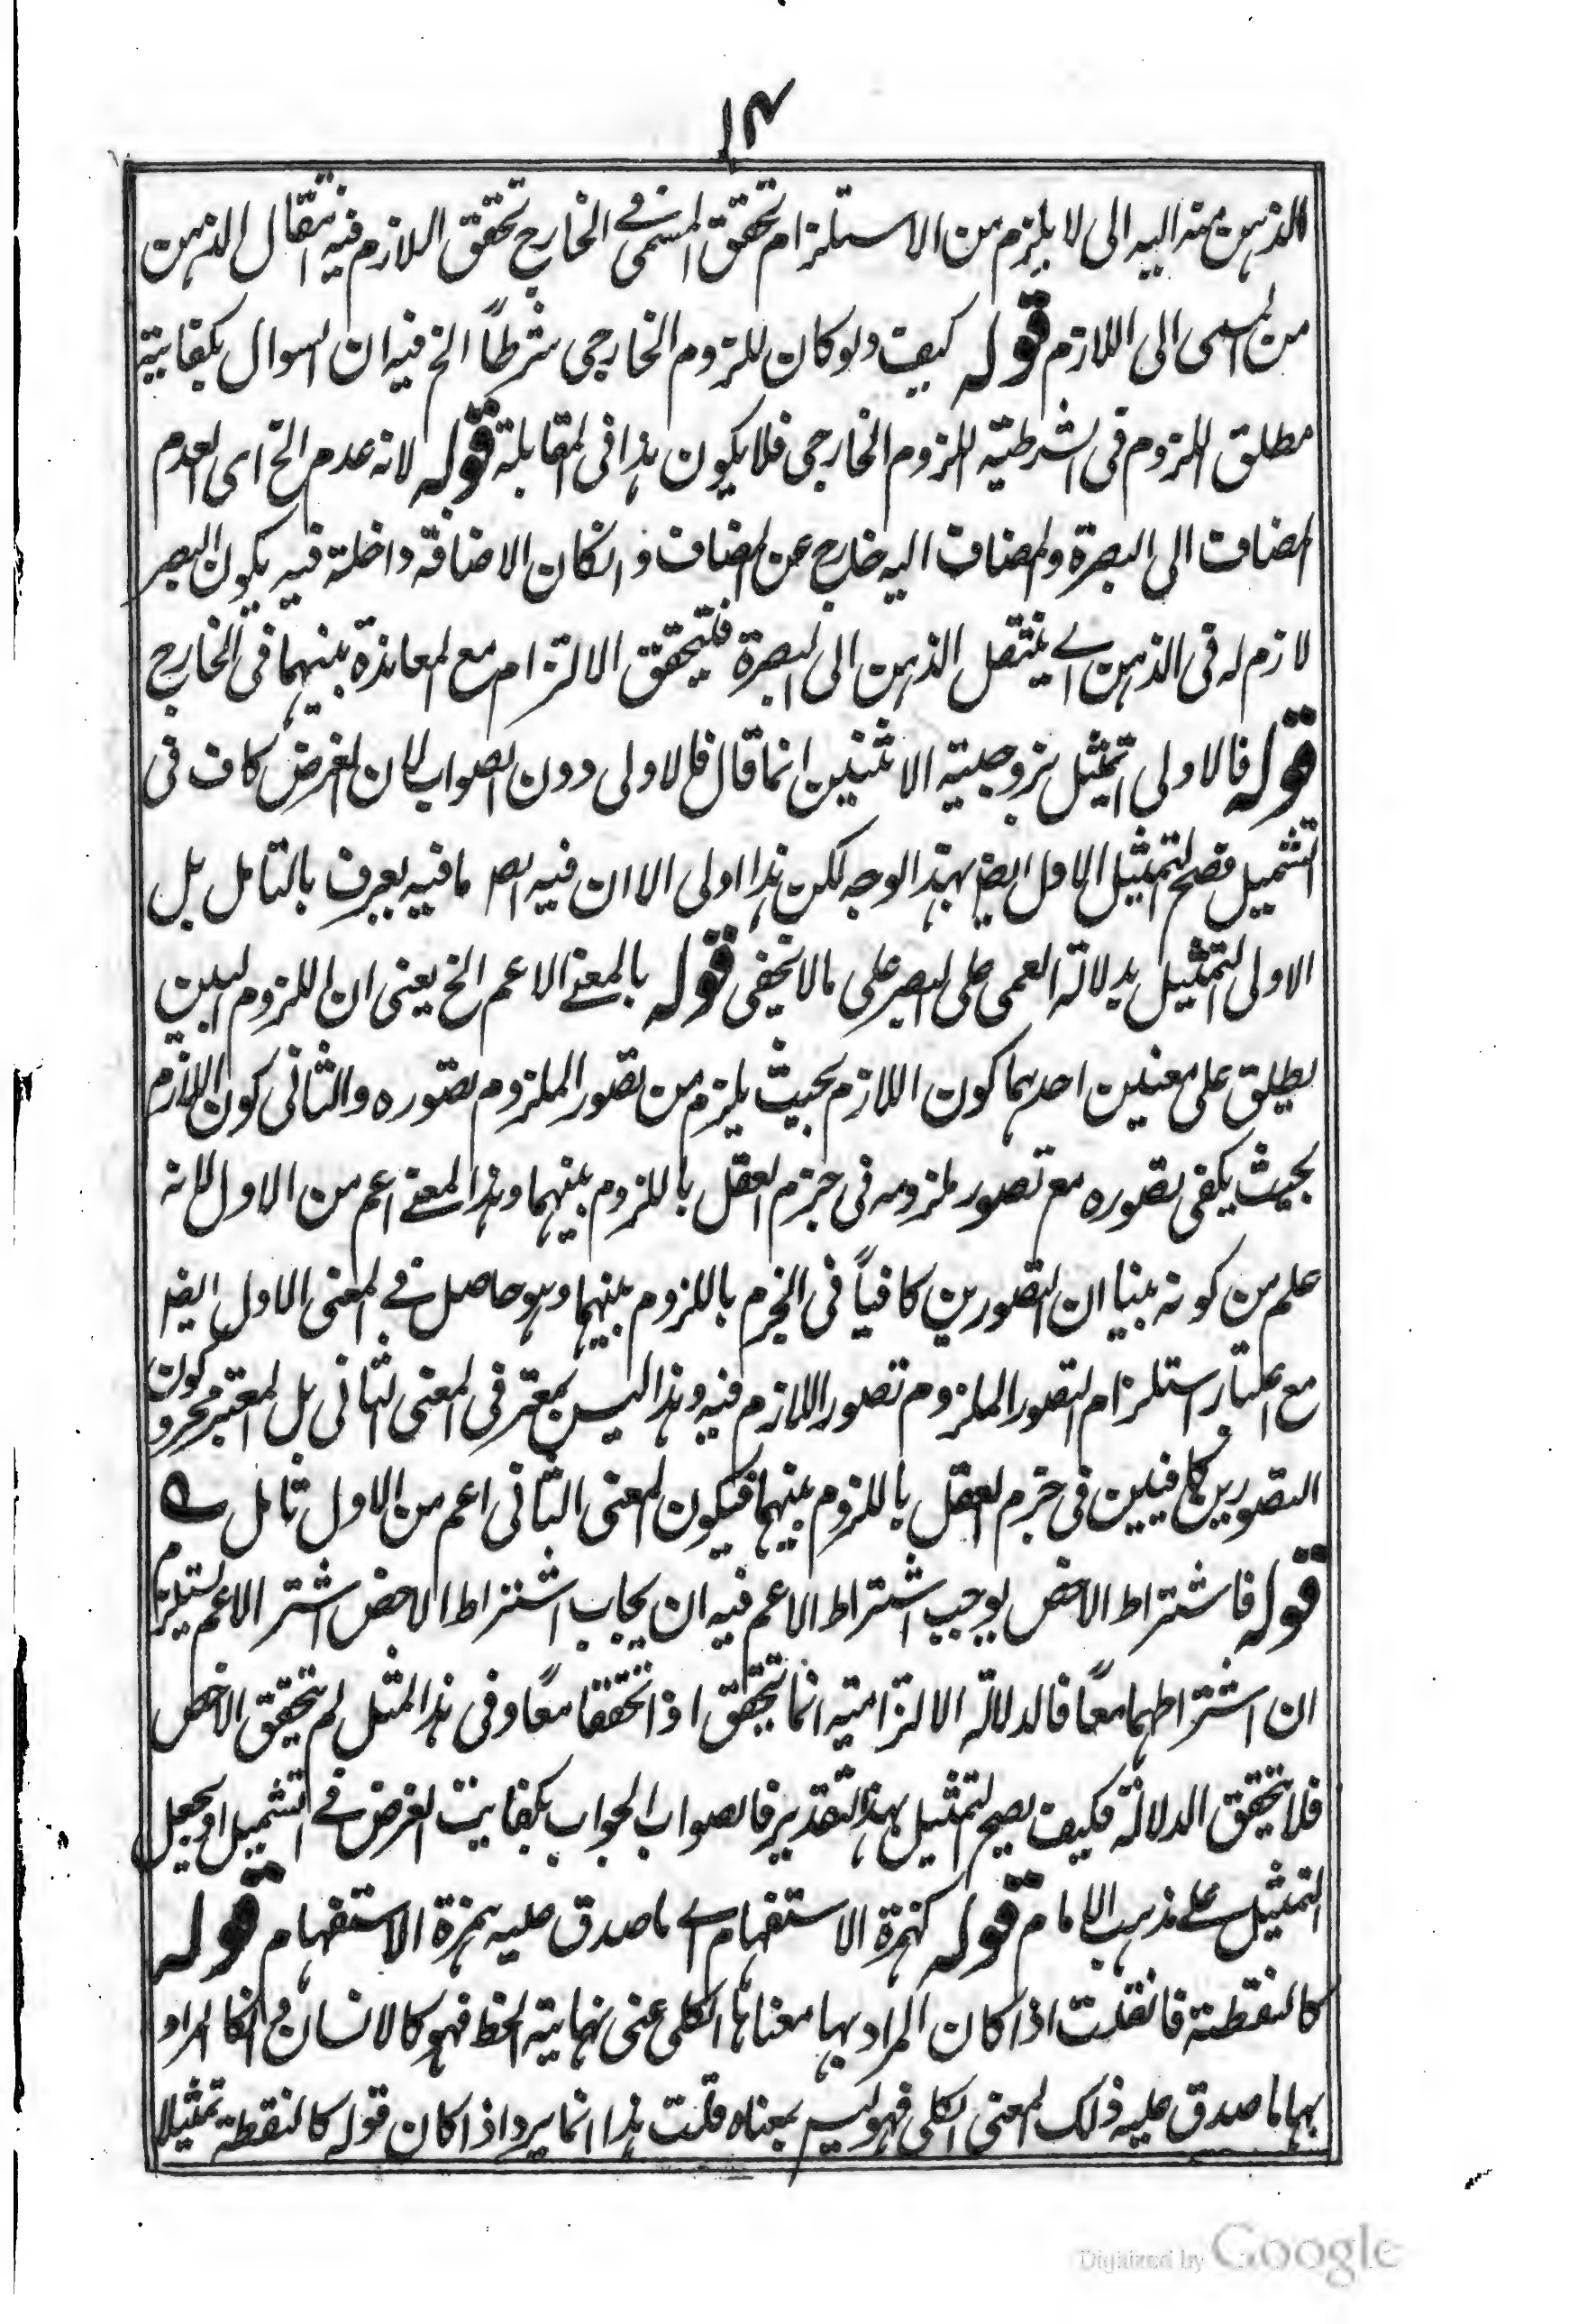 ١٤
الذهن منه اليه الى لا يلزم من الاستلزام تحقق المسمى في الخارج تحقق اللازم فيه انتقال الذهن
من المسمى الى اللازم قوله كيف ولو كان للزوم الخارجى شرطاً الخ فيه ان السوال بكفاية
مطلق اللزوم فى الشرطية اللزوم الخارجى فلا يكون هذا فى المقابلة قوله لانه عدم الخ اى العدم
المضاف الى البصرة والمضاف اليه خارج عن المضاف وانكان الاضافة داخلة فيه يكون البصر
لازم له فى الذهن اے ينتقل الذهن الى البصرة فليتحقق الالتزام مع المعاندة بينهما فى الخارج
قوله فالاولى التمثيل بزوجية الاثنين انما قال فالاولى دون الصواب لان الغرض كاف فى
التثميل فصح التمثيل الاول ايضا بهذا الوجه لكن هذا اولى الا ان فيه ايضا ما فيه يعرف بالتامل بل
الاولى التمثيل بدلالة العمى على البصر على مالا يخفى قوله بالمعنے الاعم الخ يعنى ان اللزوم البين
يطلق على معنيين احدهما كون اللازم بحيث يلزم من تصور الملزوم تصوره والثانى كون اللازم
بحيث يكفى تصوره مع تصور ملزومه فى جزم العقل باللزوم بينهما وهذا المعنے اعم من الاول لانه
علم من كونه بينا ان التصورين كافياً فى الجزم باللزوم بينهما وهو حاصل فے المعنى الاول ايضا
مع اعتبار استلزام التصور الملزوم تصور اللازم فيه وهذا ليس بمعتبر فى المعنى الثانى بل المعتبر مجرد كون
التصورين كافيين فى جزم العقل باللزوم بينهما فيكون المعنى الثانى اعم من الاول تامل
قوله فاشتراط الاخص يوجب اشتراط الاعم فيه ان يجاب اشتراط الاخص اشتر الاعم يستلزم
ان اشتراطهما معاً فالدلالة الالتزامية انما تتحقق اذا تحققا معًا وفى هذا المثل لم يتحقق الاخص
فلا يتحقق الدلالة فكيف يصح التمثيل بهذا التقدير فالصواب الجواب بكفايت الغرض فے التثميل او يجعل
التمثيل على مذهب الامام قوله كهمزة الاستفهام اے ما صدق عليه همزة الاستفهام قوله
كالنقطة فانقلت اذا كان المراد بها معناها الكلى عنى نهاية الخط فهو كالانسان وانكا المراد
بها ما صدق عليه ذلك المعنى الكلى فهو ليس بمعناه قلت هذا انما يرد اذا كان قوله كالنقطة تمثيلا
Digitized by Google